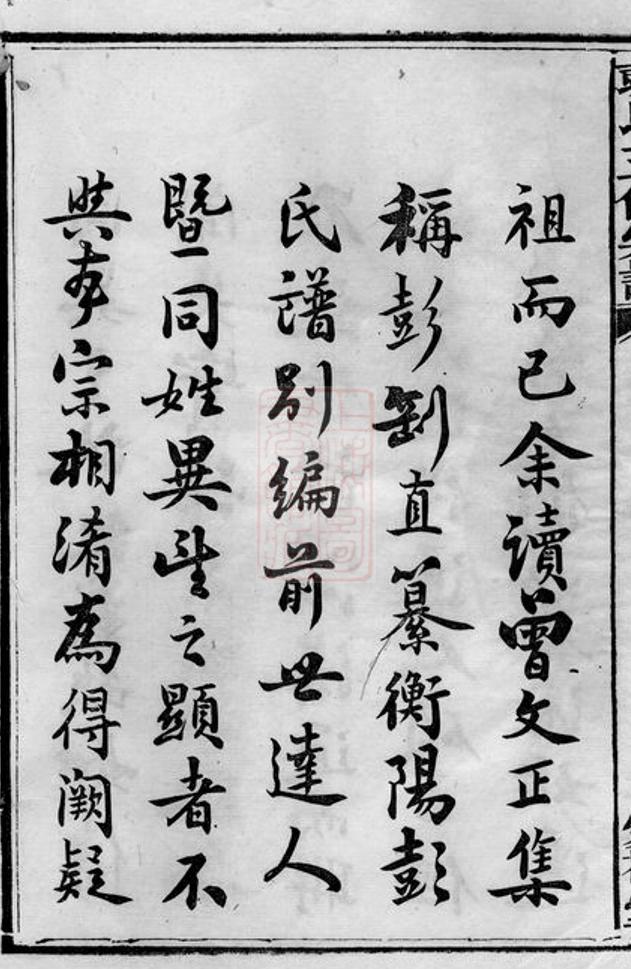 祖而已余讀曾文正集
稱彭劉直纂衡陽彭
氏譜別編前世達人
暨同姓異望之顯者不
與本宗相淆為得闕疑